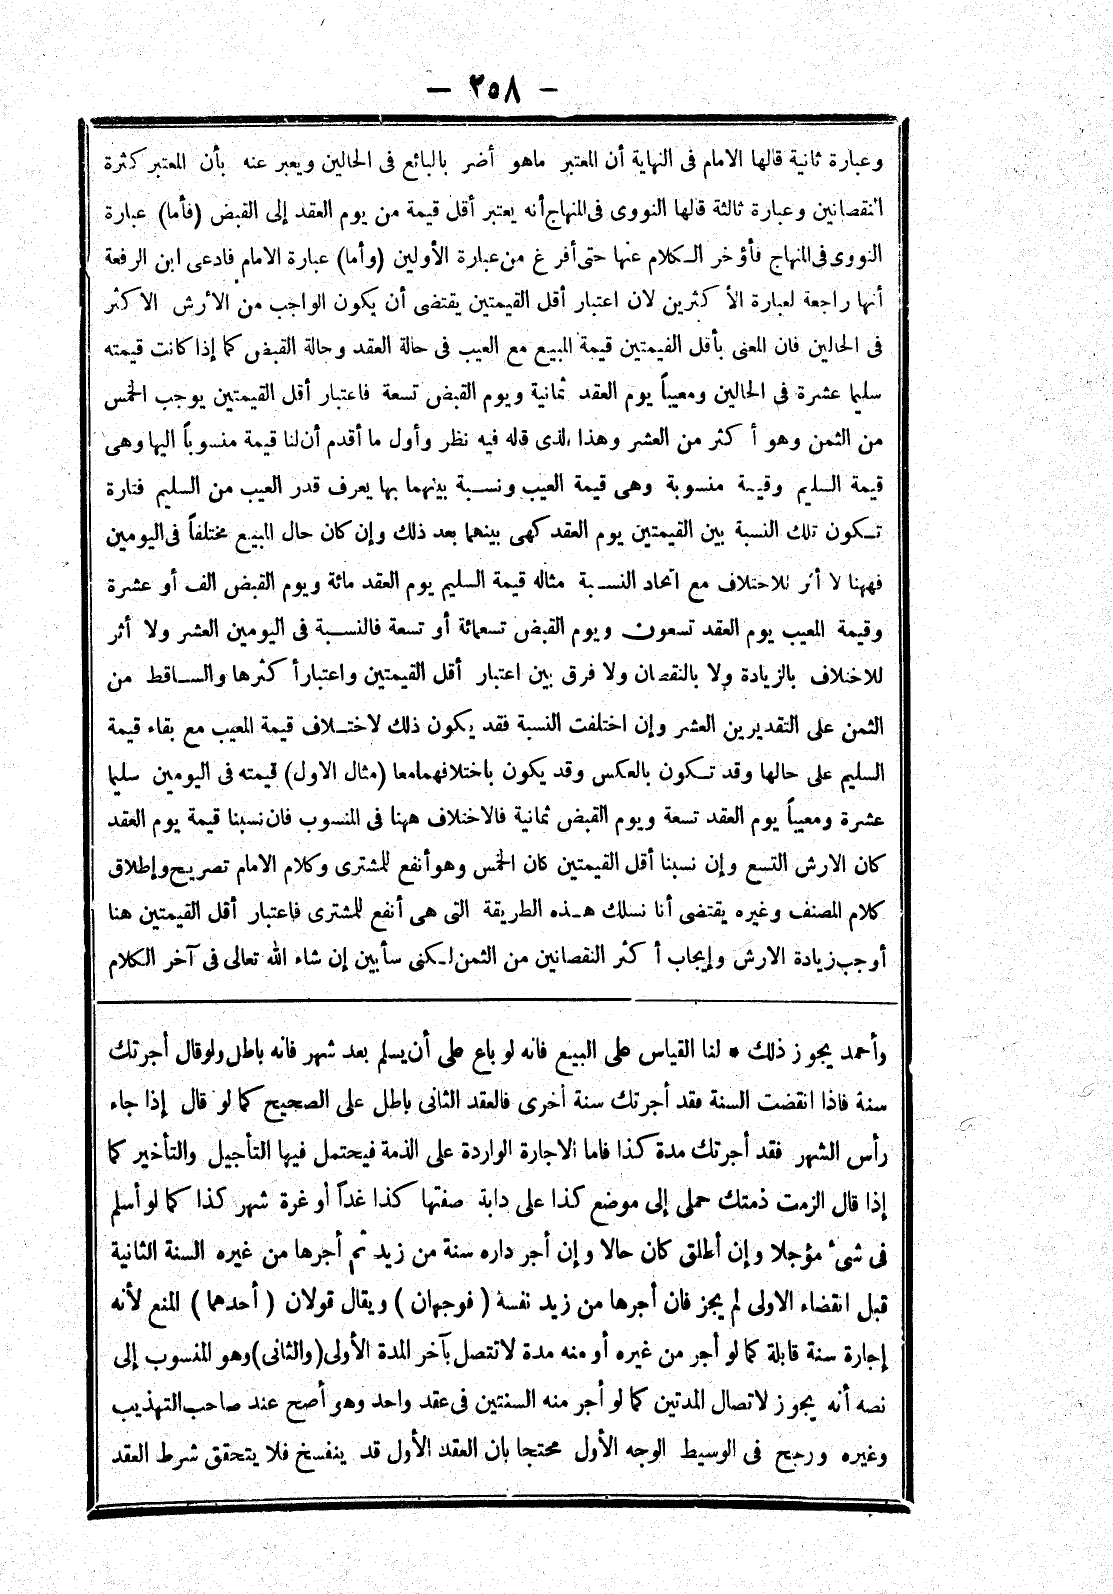 — ٢٥٨ —
وعبارة ثانية قالها الامام فى النهاية أن المعتبر ماهو أضر بالبائع فى الحالين ويعبر عنه بأن المعتبر كثرة
النقصانين وعبارة ثالثة قالها النووى فى المنهاج أنه يعتبر أقل قيمة من يوم العقد إلى القبض (فأما) عبارة
النووى فى المنهاج فأؤخر الكلام عنها حتى أفرغ من عبارة الأولين (وأما) عبارة الامام فادعى ابن الرفعة
أنها راجعة لعبارة الأكثرين لان اعتبار أقل القيمتين يقتضى أن يكون الواجب من الأرش الاكثر
فى الحالين فان المعنى بأقل القيمتين قيمة المبيع مع العيب فى حالة العقد وحالة القبض كما إذا كانت قيمته
سليما عشرة فى الحالين ومعيباً يوم العقد ثمانية ويوم القبض تسعة فاعتبار أقل القيمتين يوجب الخمس
من الثمن وهو أكثر من العشر وهذا الذى قاله فيه نظر وأول ما أقدم أن لنا قيمة منسوباً اليها وهى
قيمة السليم وقيمة منسوبة وهى قيمة العيب ونسبة بينهما بها يعرف قدر العيب من السليم فتارة
تكون تلك النسبة بين القيمتين يوم العقد كهى بينهما بعد ذلك وإن كان حال المبيع مختلفاً فى اليومين
فههنا لا أثر للاختلاف مع اتحاد النسبة مثاله قيمة السليم يوم العقد مائة ويوم القبض الف أو عشرة
وقيمة المعيب يوم العقد تسعون ويوم القبض تسعمائة أو تسعة فالنسبة فى اليومين العشر ولا أثر
للاختلاف بالزيادة ولا بالنقصان ولا فرق بين اعتبار أقل القيمتين واعتبار أكثرها والساقط من
الثمن على التقديرين العشر وإن اختلفت النسبة فقد يكون ذلك لاختلاف قيمة المعيب مع بقاء قيمة
السليم على حالها وقد تكون بالعكس وقد يكون باختلافهما معا (مثال الاول) قيمته فى اليومين سليما
عشرة ومعيباً يوم العقد تسعة ويوم القبض ثمانية فالاختلاف ههنا فى المنسوب فان نسبنا قيمة يوم العقد
كان الارش التسع وإن نسبنا أقل القيمتين كان الخمس وهو أنفع للمشترى وكلام الامام تصريح وإطلاق
كلام المصنف وغيره يقتضى أنا نسلك هذه الطريقة التى هى أنفع للمشترى فاعتبار أقل القيمتين هنا
أوجب زيادة الارش وإيجاب أكثر النقصانين من الثمن لكنى سأبين إن شاء الله تعالى فى آخر الكلام
وأحمد يجوز ذلك * لنا القياس على البيع فانه لو باع على أن يسلم بعد شهر فانه باطل ولو قال أجرتك
سنة فاذا انقضت السنة فقد أجرتك سنة أخرى فالعقد الثانى باطل على الصحيح كما لو قال إذا جاء
رأس الشهر فقد أجرتك مدة كذا فاما الاجارة الواردة على الذمة فيحتمل فيها التأجيل والتأخير كما
إذا قال الزمت ذمتك حملى إلى موضع كذا على دابة صفتها كذا غداً أو غرة شهر كذا كما لو أسلم
فى شىء مؤجلا وإن أطلق كان حالا وإن أجر داره سنة من زيد ثم أجرها من غيره السنة الثانية
قبل انقضاء الاولى لم يجز فان أجرها من زيد نفسة (فوجهان) ويقال قولان (أحدهما) المنع لأنه
إجارة سنة قابلة كما لو أجر من غيره أو منه مدة لا تتصل بآخر المدة الأولى (والثانى) وهو المنسوب إلى
نصه أنه يجوز لاتصال المدتين كما لو أجر منه السنتين فى عقد واحد وهو أصح عند صاحب التهذيب
وغيره ورجح فى الوسيط الوجه الأول محتجا بان العقد الأول قد ينفسخ فلا يتحقق شرط العقد